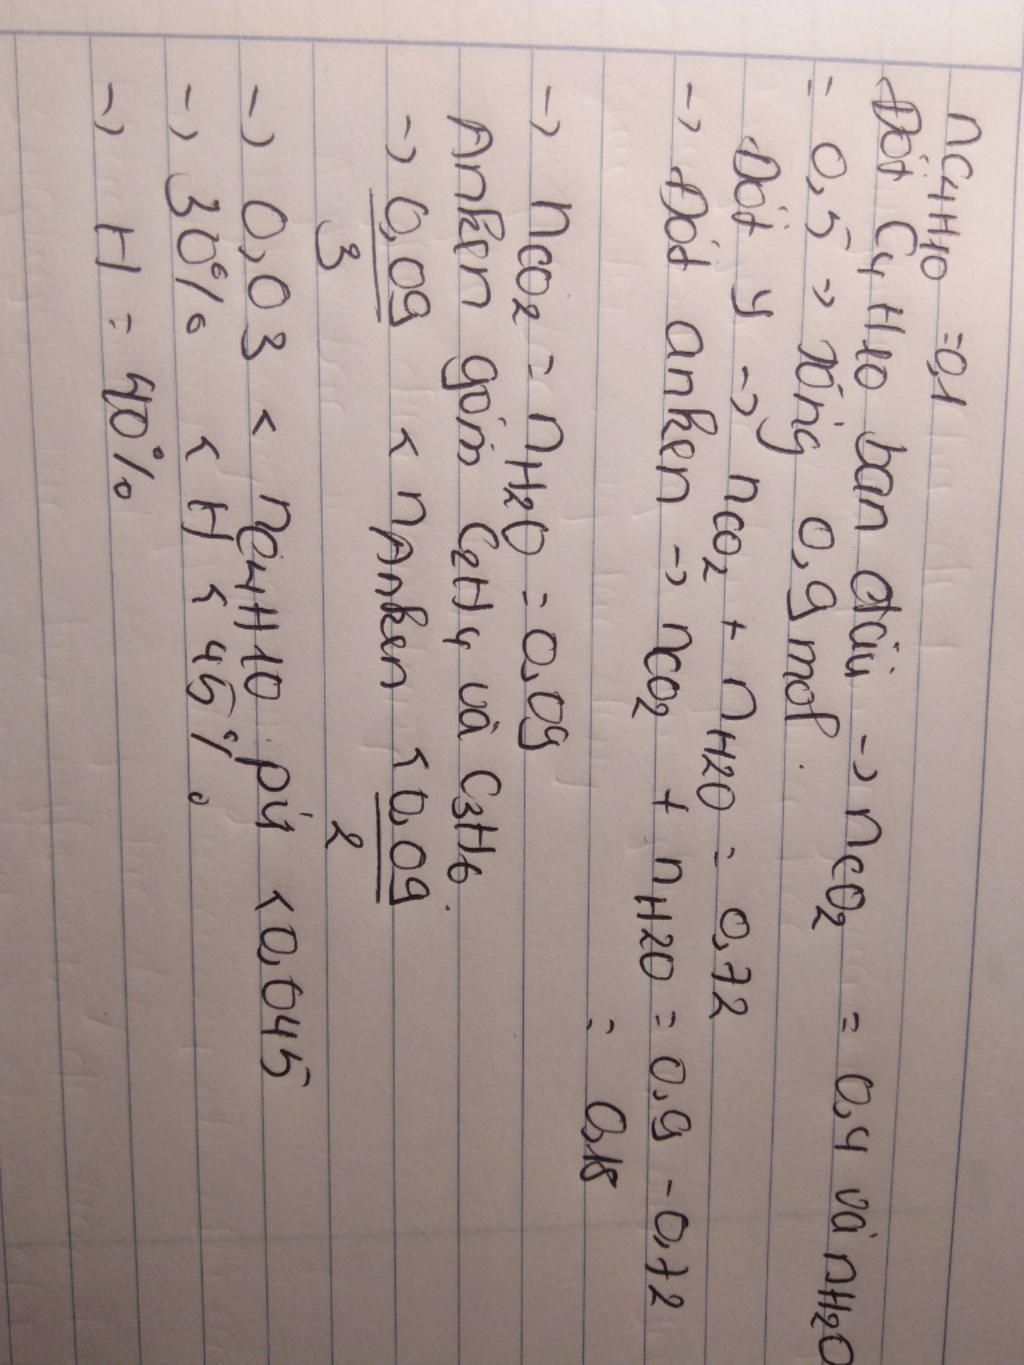 nC4H10 = 0,1
Đốt C4H10 ban đầu -> nCO2 = 0,4 và nH2O
= 0,5 => tổng 0,9 mol.
Đốt Y -> nCO2 + nH2O = 0,72
-> Đốt anken -> nCO2 + nH2O = 0,9 - 0,72
= 0,18
-> nCO2 = nH2O = 0,09
Anken gồm C2H4 và C3H6.
-> 0,09/3 < nAnken < 0,09/2
-> 0,03 < nC4H10 pứ < 0,045
-> 30% < H < 45%.
-> H = 40%